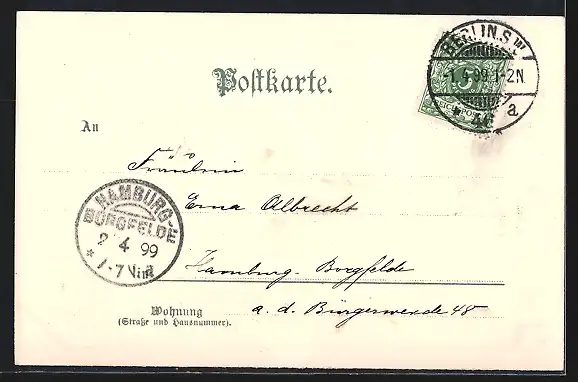 BERLIN.S.W.
-1.4.99.1-2N.
* 46 a
5
REICHSPOST
Postkarte.
An
Fräulein
Erna Albrecht
HAMBURG-
BORGFELDE
2 4 99
* 1-7 Vm
Hamburg-Borgfelde
Wohnung
(Straße und Hausnummer).
a. d. Bürgerweide 48